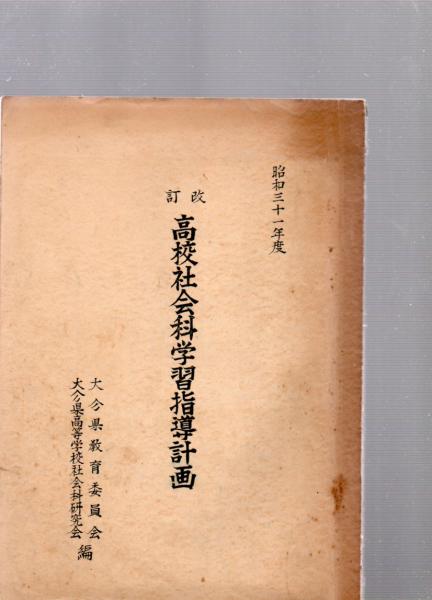 昭和三十一年度
改訂
高校社会科学習指導計画
大分県教育委員会
大分県高等学校社会科研究会
編